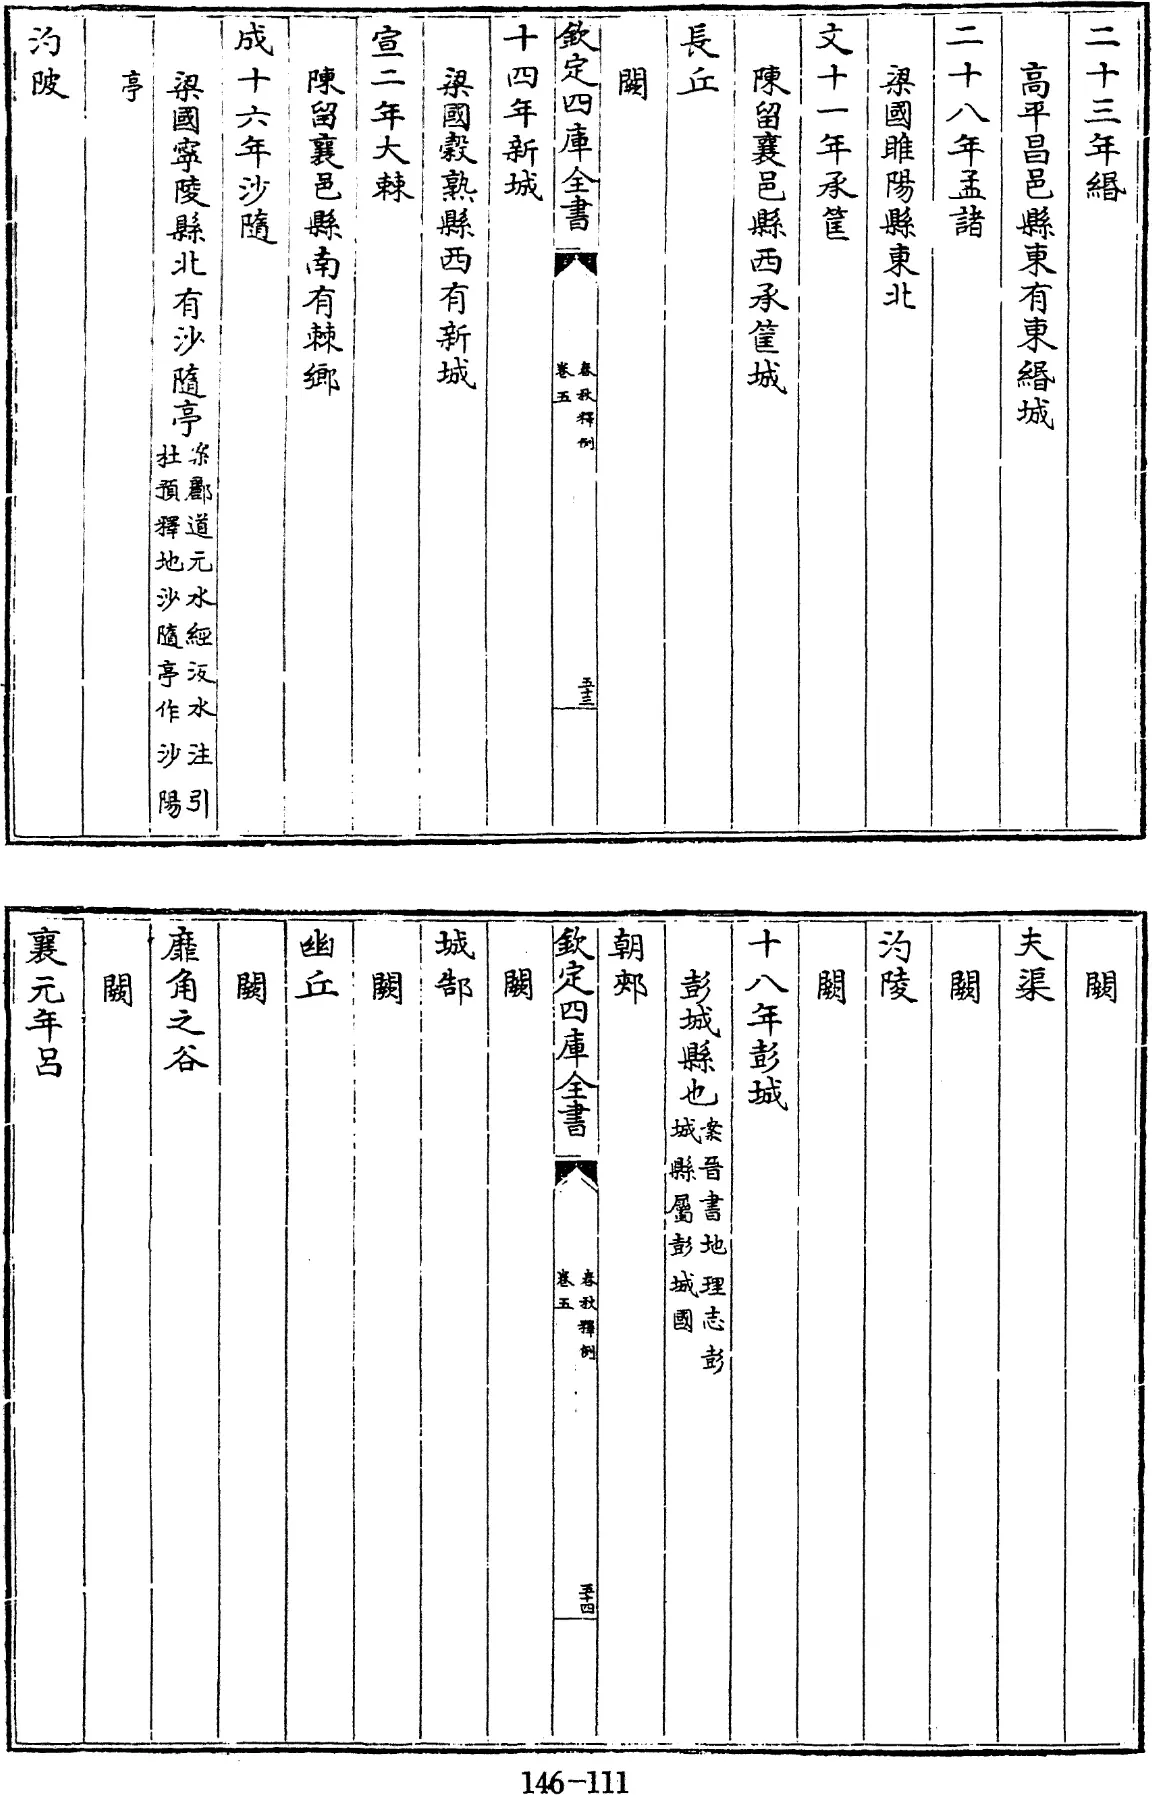 二十三年緡
高平昌邑縣東有東緡城
二十八年孟諸
梁國睢陽縣東北
文十一年承筐
陳留襄邑縣西承筐城
長丘
闕
欽定四庫全書
春秋釋例
卷五
五十三
十四年新城
梁國穀熟縣西有新城
宣二年大棘
陳留襄邑縣南有棘鄉
成十六年沙隨
梁國寧陵縣北有沙隨亭案酈道元水經汳水注引
杜預釋地沙隨亭作沙陽
亭
汋陂
闕
夫渠
闕
汋陵
闕
十八年彭城
彭城縣也案晉書地理志彭
城縣屬彭城國
朝郟
欽定四庫全書
春秋釋例
卷五
五十四
闕
城郜
闕
幽丘
闕
靡角之谷
闕
襄元年呂
146-111